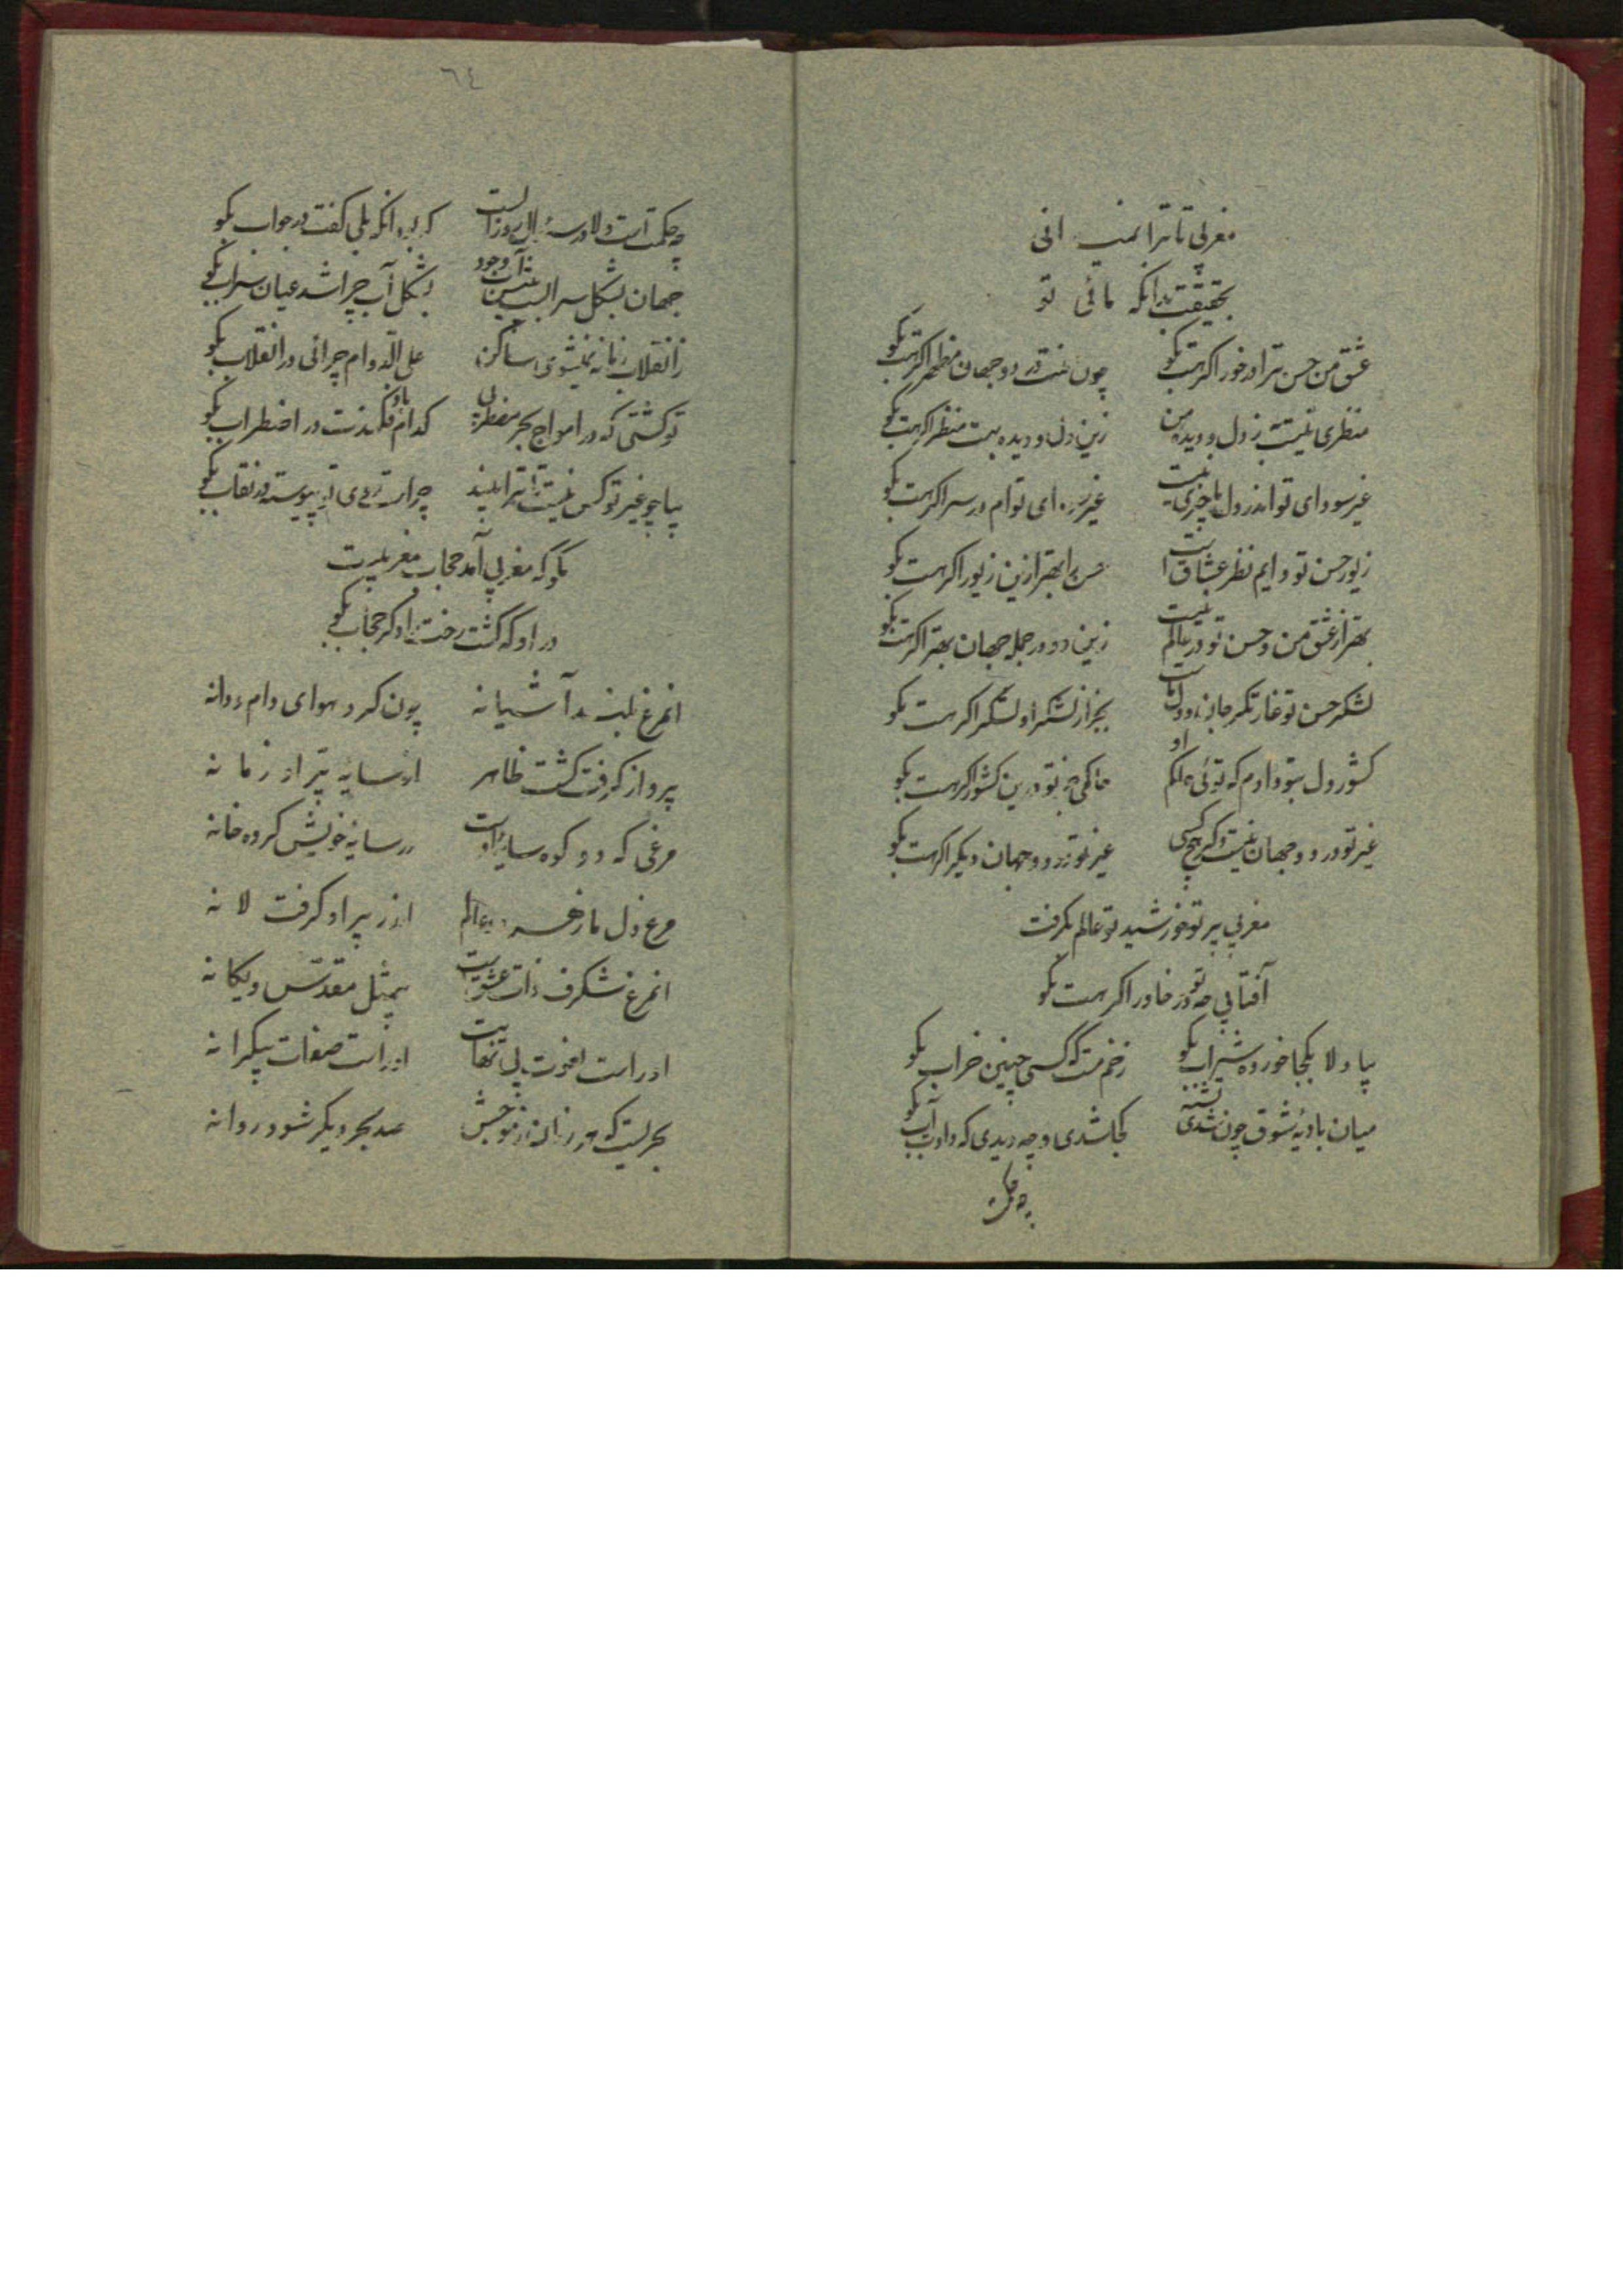 مغربی تا ترا نمیدانی
بحقیقت بدانکه مائی تو
عشق من حسن ترا درخور اگر هست بگو چون منت در دو جهان مظهر اگر هست بگو
منظری نیست ز دل و دیده من زین دل و دیده بهت منظر اگر هست بگو
غیر سودای تو اندر دل ما چیزی نیست غیر سودای توام در سر اگر هست بگو
زیور حسن تو دایم نظر عشاق است حسن را بهتر ازین زیور اگر هست بگو
بهتر از عشق من و حسن تو در عالم نیست زین دو در جمله جهان بهتر اگر هست بگو
لشکر حسن تو غارتگر جان و دل ماست بجز از لشکر او لشکر اگر هست بگو
کشور دل بتو دادم که توئی حاکم او حاکمی جز تو درین کشور اگر هست بگو
غیر تو در دو جهان نیست دگر هیچ کسی غیر تو در دو جهان دیگر اگر هست بگو
مغربی پرتو خورشید تو عالم بگرفت
آفتابی چو تو در خاور اگر هست بگو
بیا دلا بکجا خورده شراب بگو ز خم مست که گشتی چنین خراب بگو
میان بادیه شوق چون شدی تشنه کجا شدی و چه دیدی که دادت آب بگو
چه حکمت
٦٤
چه حکمت است دلا در سؤال روز الست که بود آنکه بلی گفت در جواب بگو
جهان بشکل سرابست نیست آب وجود بشکل آب چرا شد عیان سراب بگو
ز انقلاب زمانه نمیشوی ساکن علی الدوام چرائی در انقلاب بگو
تو کشتی که در امواج بحر مضطربی کدام باد فکندت در اضطراب بگو
بیا چو غیر تو کس نیست تا ترا بیند چراست روی تو پیوسته در نقاب بگو
بگو که مغربی آمد حجاب مغربیت
در او که گشت رخت را دگر حجاب بگو
آنمرغ بلند آشیانه چون کرد هوای دام و دانه
پرواز گرفت گشت ظاهر از سایه پر او زمانه
مرغی که دو کون سایه اوست در سایه خویش کرده خانه
مرغ دل ما ز هر دو عالم در زیر پر او گرفت لانه
آنمرغ شگرف ذات عشق است بیمثل مقدس و یگانه
او راست نعوت بی نهایت او راست صفات بیکرانه
بحریست که هر زمان ز موجش صد بحر دیگر شود روانه